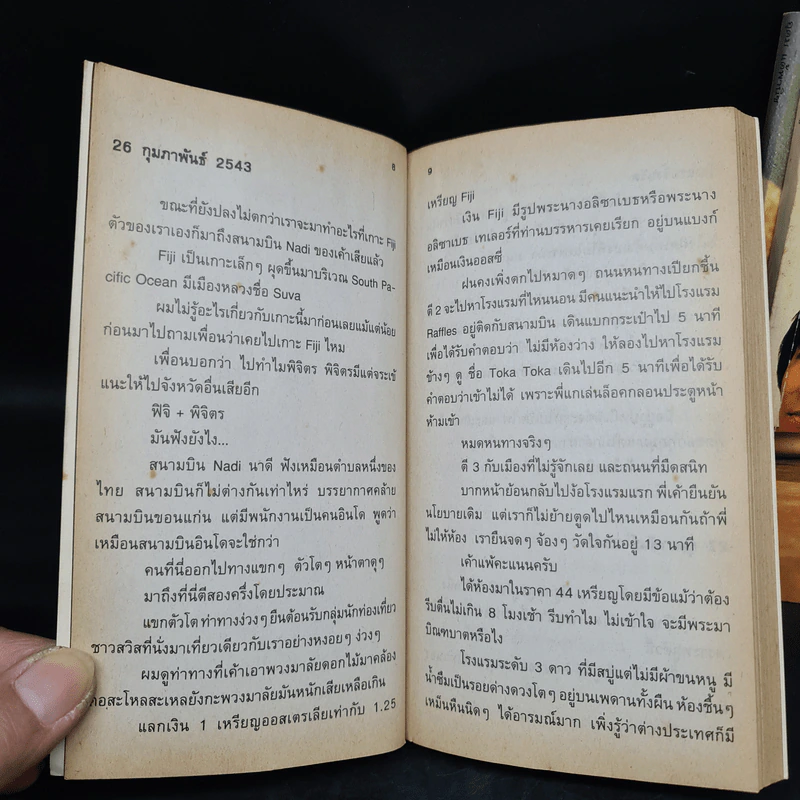 26 กุมภาพันธ์ 2543
8
ขณะที่ยังปลงไม่ตกว่าเราจะมาทำอะไรที่เกาะ Fiji
ตัวของเราเองก็มาถึงสนามบิน Nadi ของเค้าเสียแล้ว
Fiji เป็นเกาะเล็กๆ ผุดขึ้นมาบริเวณ South Pa-
cific Ocean มีเมืองหลวงชื่อ Suva
ผมไม่รู้อะไรเกี่ยวกับเกาะนี้มาก่อนเลยแม้แต่น้อย
ก่อนมาไปถามเพื่อนว่าเคยไปเกาะ Fiji ไหม
เพื่อนบอกว่า ไปทำไมพิจิตร พิจิตรมีแต่จระเข้
แนะให้ไปจังหวัดอื่นเสียอีก
ฟิจิ + พิจิตร
มันฟังยังไง...
สนามบิน Nadi นาดี ฟังเหมือนตำบลหนึ่งของ
ไทย สนามบินก็ไม่ต่างกันเท่าไหร่ บรรยากาศคล้าย
สนามบินขอนแก่น แต่มีพนักงานเป็นคนอินโด พูดว่า
เหมือนสนามบินอินโดจะใช่กว่า
คนที่นี่ออกไปทางแขกๆ ตัวโตๆ หน้าตาดุๆ
มาถึงที่นี่ตีสองครึ่งโดยประมาณ
แขกตัวโตท่าทางง่วงๆ ยืนต้อนรับกลุ่มนักท่องเที่ยว
ชาวสวิสที่นั่งมาเที่ยวเดียวกับเราอย่างหงอยๆ ง่วงๆ
ผมดูท่าทางที่เค้าเอาพวงมาลัยดอกไม้มาคล้อง
คอสะโหลสะเหลยังกะพวงมาลัยมันหนักเสียเหลือเกิน
แลกเงิน 1 เหรียญออสเตรเลียเท่ากับ 1.25
9
เหรียญ Fiji
เงิน Fiji มีรูปพระนางอลิซาเบธหรือพระนาง
อลิซาเบธ เทเลอร์ที่ท่านบรรหารเคยเรียก อยู่บนแบงก์
เหมือนเงินออสซี่
ฝนคงเพิ่งตกไปหมาดๆ ถนนหนทางเปียกชื้น
ตี 2 จะไปหาโรงแรมที่ไหนนอน มีคนแนะนำให้ไปโรงแรม
Raffles อยู่ติดกับสนามบิน เดินแบกกระเป๋าไป 5 นาที
เพื่อได้รับคำตอบว่า ไม่มีห้องว่าง ให้ลองไปหาโรงแรม
ข้างๆ ดู ชื่อ Toka Toka เดินไปอีก 5 นาทีเพื่อได้รับ
คำตอบว่าเข้าไม่ได้ เพราะพี่แกเล่นล็อคกลอนประตูหน้า
ห้ามเข้า
หมดหนทางจริงๆ
ตี 3 กับเมืองที่ไม่รู้จักเลย และถนนที่มืดสนิท
บากหน้าย้อนกลับไปง้อโรงแรมแรก พี่เค้ายืนยัน
นโยบายเดิม แต่เราก็ไม่ย้ายตูดไปไหนเหมือนกันถ้าพี่
ไม่ให้ห้อง เรายืนจดๆ จ้องๆ วัดใจกันอยู่ 13 นาที
เค้าแพ้คะแนนครับ
ได้ห้องมาในราคา 44 เหรียญโดยมีข้อแม้ว่าต้อง
รีบตื่นไม่เกิน 8 โมงเช้า รีบทำไม ไม่เข้าใจ จะมีพระมา
บิณฑบาตหรือไง
โรงแรมระดับ 3 ดาว ที่มีสบู่แต่ไม่มีผ้าขนหนู มี
น้ำซึมเป็นรอยด่างดวงโตๆ อยู่บนเพดานทั้งผืน ห้องชื้นๆ
เหม็นหืนนิดๆ ได้อารมณ์มาก เพิ่งรู้ว่าต่างประเทศก็มี